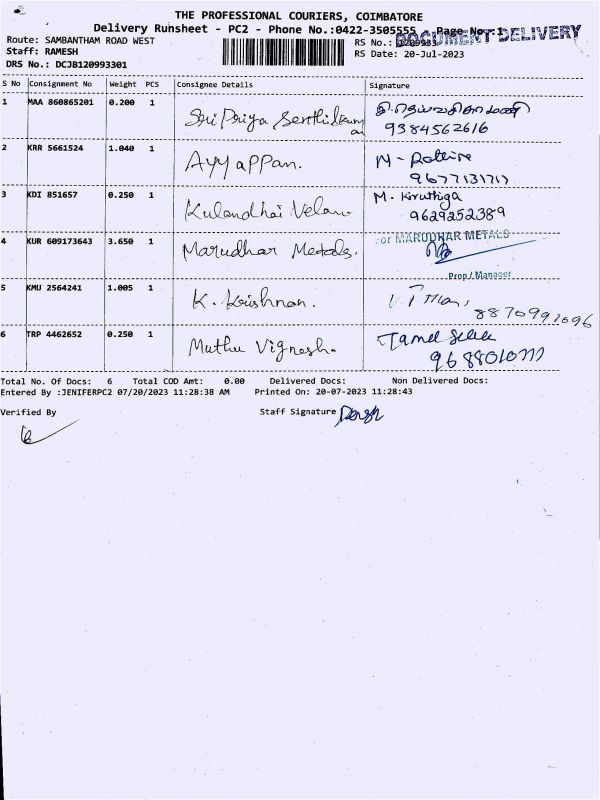 THE PROFESSIONAL COURIERS, COIMBATORE
Delivery Runsheet - PC2 - Phone No.:0422-3505555 Page No: 1
DOCUMENT DELIVERY
Route: SAMBANTHAM ROAD WEST RS No.:
Staff: RAMESH RS Date: 20-Jul-2023
DRS No.: DCJB120993301
S No Consignment No Weight PCS Consignee Details Signature
1 MAA 860865201 0.200 1 Sri Priya Senthilkumar
9384562616
2 KRR 5661524 1.040 1 Ayyappan.
3 KDI 851657 0.250 1 Kulandhai Velan M. Kiruthiga
9629252389
4 KUR 609173643 3.650 1 Marudhar Metals. For MARUDHAR METALS
Prop./Manager
5 KMU 2564241 1.005 1 K. Krishnan.
8870991096
6 TRP 4462652 0.250 1 Muthu Vignesh.
Total No. Of Docs: 6 Total COD Amt: 0.00 Delivered Docs: Non Delivered Docs:
Entered By :JENIFERPC2 07/20/2023 11:28:38 AM Printed On: 20-07-2023 11:28:43
Verified By Staff Signature